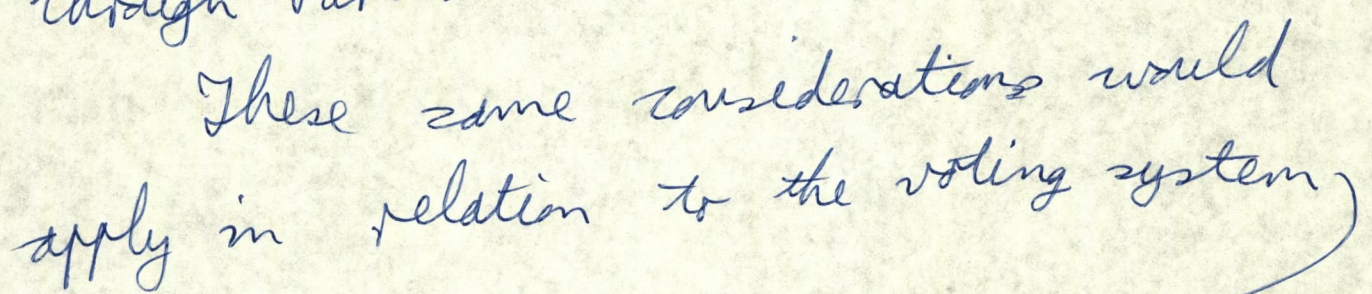 through
These same considerations would
apply in relation to the voting system,